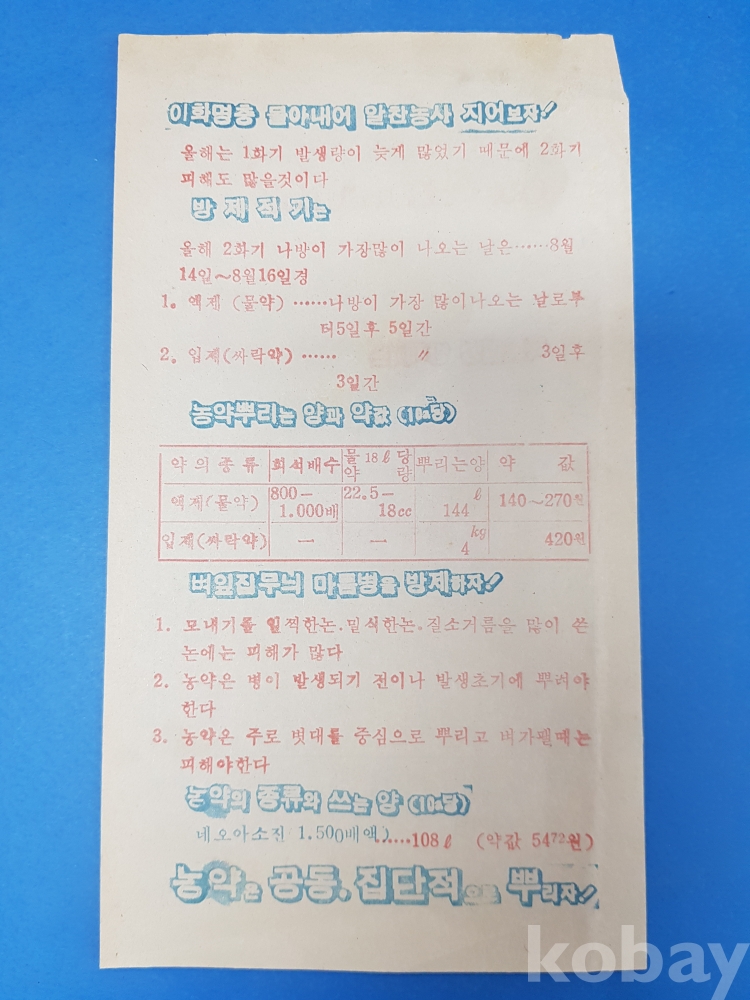 이화명충 몰아내어 알찬농사 지어보자!
올해는 1화기 발생량이 늦게 많었기 때문에 2화기
피해도 많을것이다
방제적기는
올해 2화기 나방이 가장많이 나오는 날은……8월
14일~8월16일경
1. 액젬 (물약) ……나방이 가장 많이나오는 날로부
터5일후 5일간
2. 입제(싸락약) …… 〃 3일후
3일간
농약뿌리는 양과 약값 (10a당)
약의종류 희석배수 물18ℓ당약량 뿌리는양 약 값
액제(물약) 800-1.000배 22.5-18cc 144ℓ 140~270원
입제(싸락약) — — 4kg 420원
벼잎집무늬 마름병을 방제하자!
1. 모내기를 일찍한논.밀식한논.질소거름을 많이 쓴
논에는 피해가 많다
2. 농약은 병이 발생되기 전이나 발생초기에 뿌려야
한다
3. 농약은 주로 볏대를 중심으로 뿌리고 벼가팰때는
피해야한다
농약의 종류와 쓰는 양 (10a당)
네오아소진 1.500배액)……108ℓ (약값 5472원)
농약은 공동, 집단적으로 뿌리자!
kobay